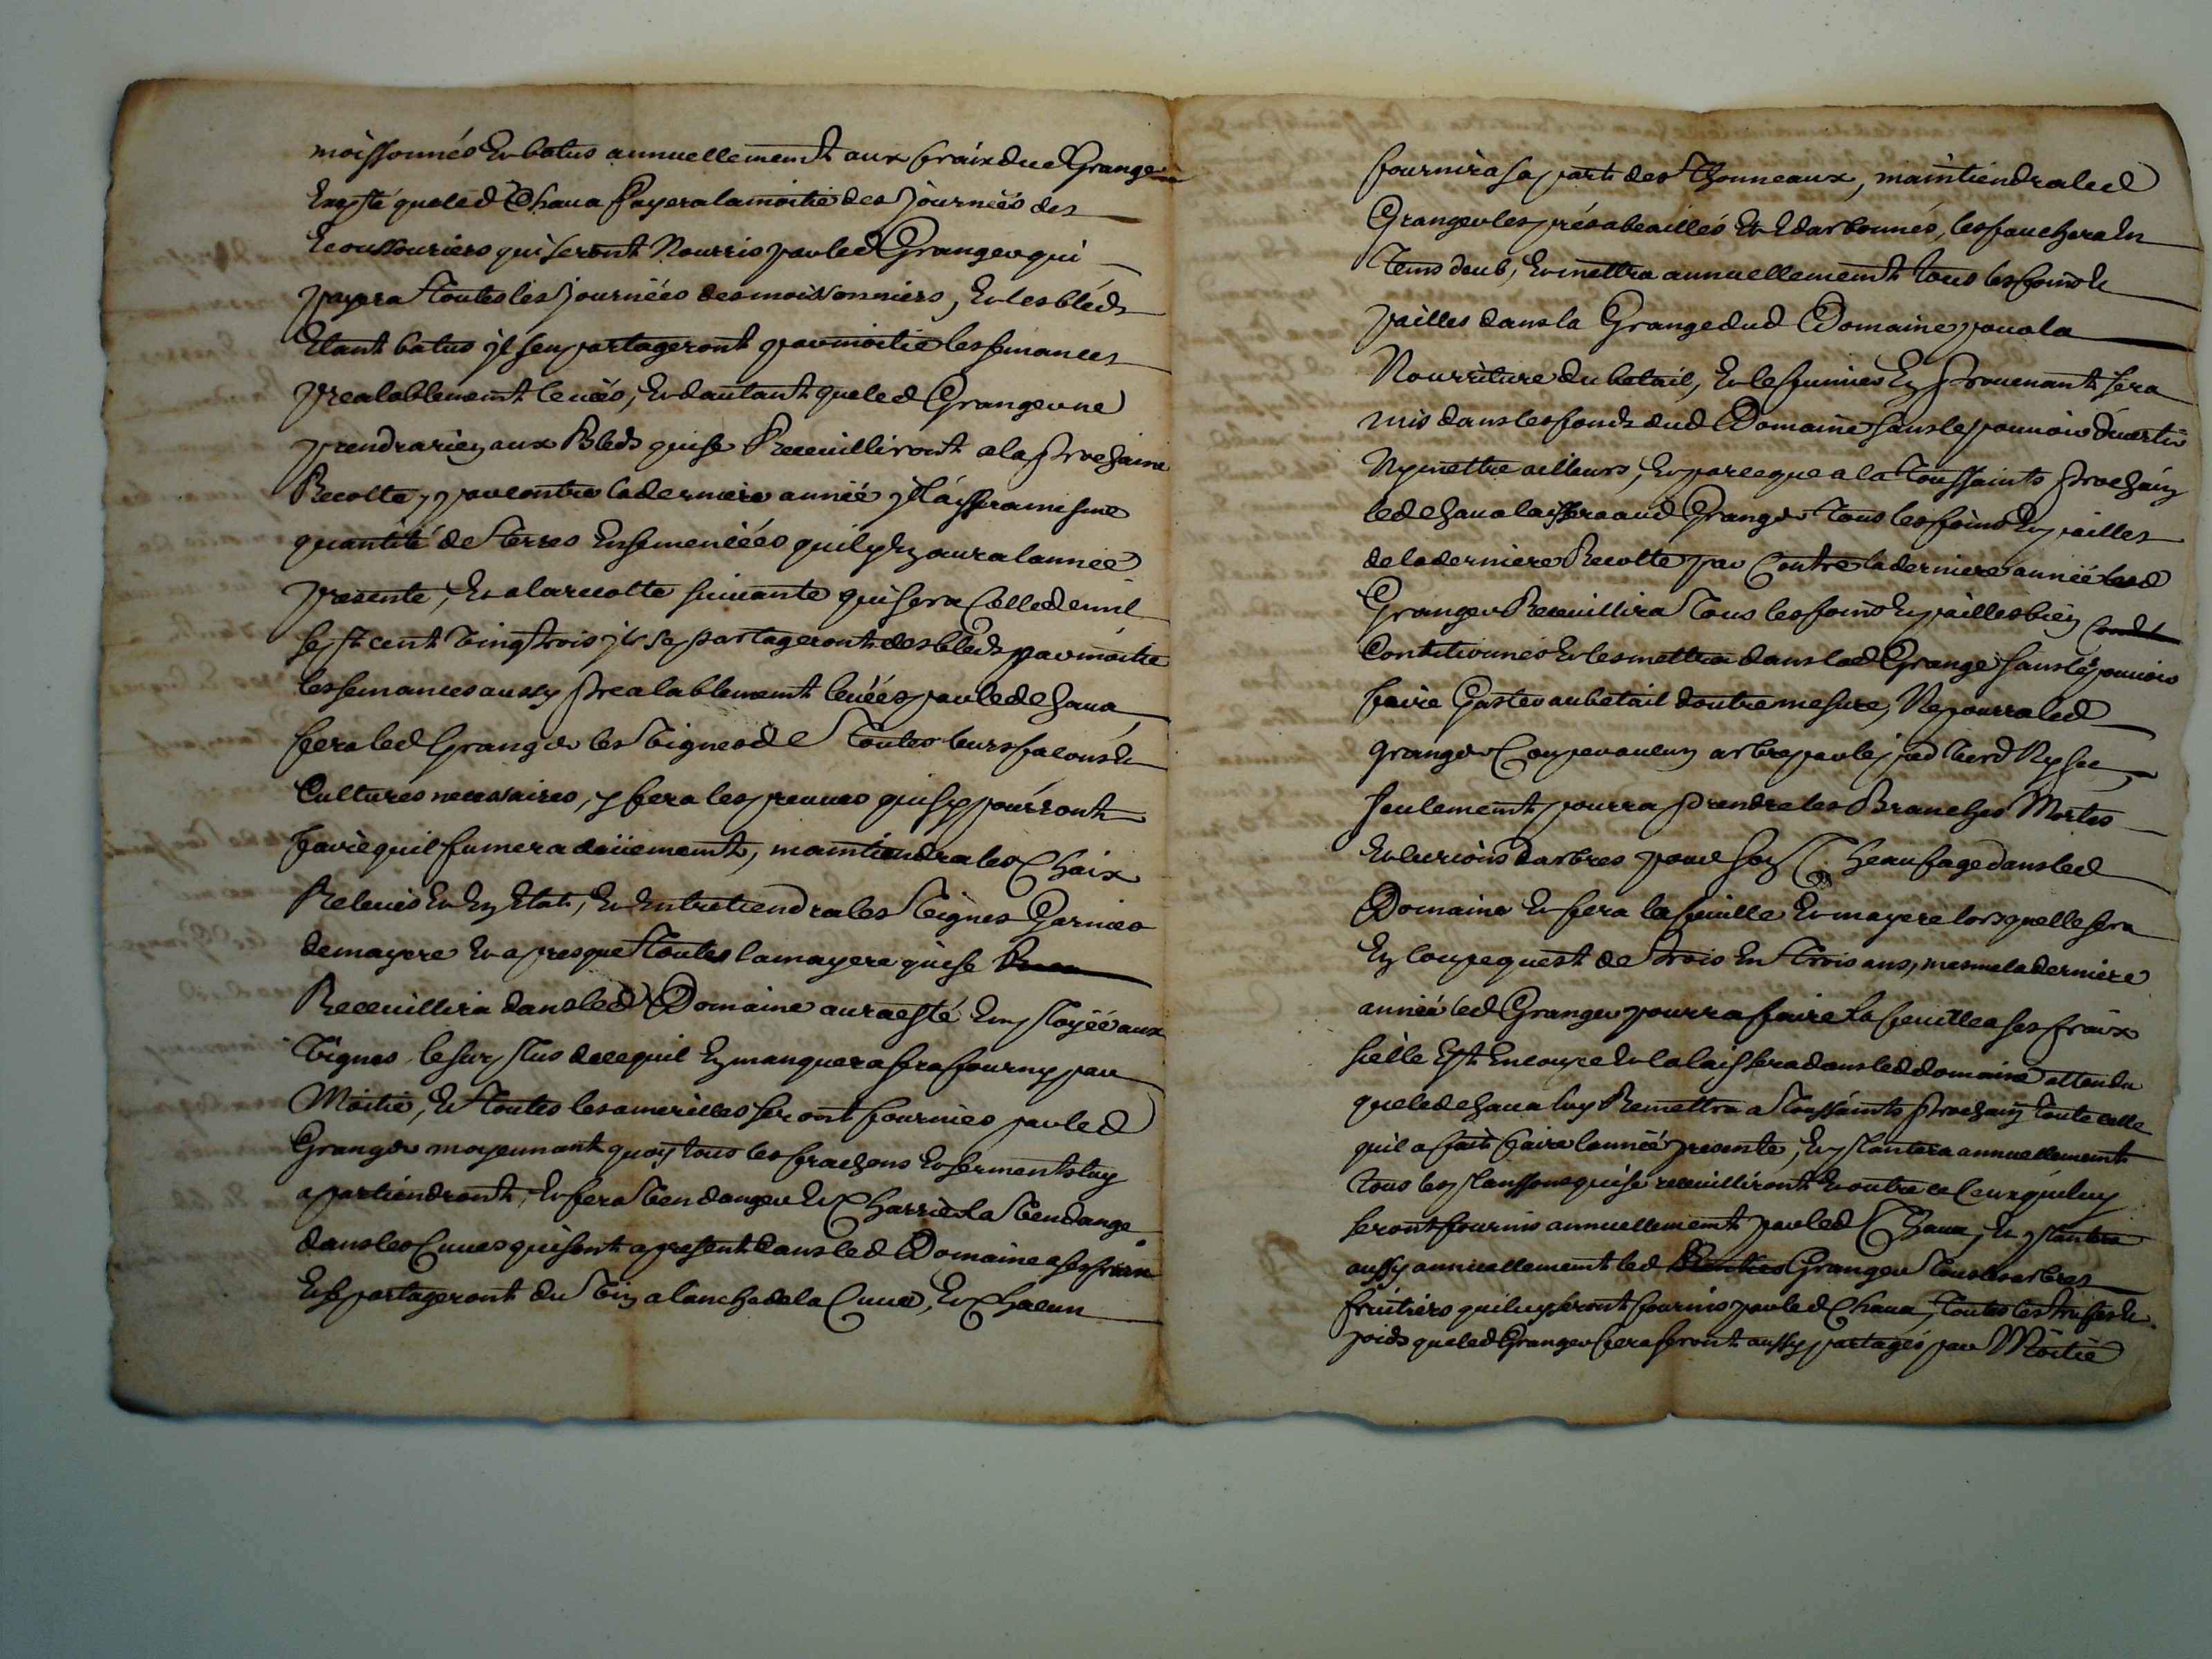 moissonnés et batus annuellement aux fraix dud Granger
Exepté queled Chaua Payera la moitié des journéés des
Ecoussouriers qui seront Nourris par led Granger qui
payera Toutes les journéés des moissonniers, et les bléds
Etant batus jl seu partageront par moitié les semances
prealablement leuéés, et dautant queled Granger ne
prendra rien aux Bleds qui se Receuilliront a la prochaine
Recolte, par contre la derniere année jl laissera mesme
quantité de Terres Ensemencéés quil y en aura lannéé
presente, et a la recolte suiuante qui sera Celle de mil
sept cent vingt trois jls se partageront des bleds par moitié
les semances aussy prealablement leuéés par led chaua
fera led Granger les vignes de Toutes leurs facons et
Cultures necessaires, y fera les preuues qui sy pourront
faire quil fumera düement, maintiendra les Chaix
Releués et En Etat, et Entretiendra les vignes Garnies
de mayere et apres que Toutes la mayere qui se
Receuillira dans led Domaine aura esté Employéé aux
vignes le surplus de ce quil En manquera sera fourny par
Moitié, et Toutes les amerines seront fournies par led
Granger moyennant quoy tous les frachons et serments luy
apartiendront, et fera vendanger et Charrier la vendange
dans les Cuues qui sont a present dans led Domaine a ses fraix
Et se partageront du vin a lanche de la Cuue, et Chacun
fournira sa part des Thonneaux, maintiendra led
Granger les prés abeaillés et Edarbonnés, les fauchera En
Tems deub, et mettra annuellement tous les foins et
pailles dans la Grange dud Domaine pour la
Nourriture du betail, et les fumier En prouenant sera
mis dans les fonds dud Domaine sans le pouuoir diuertir
Ny mettre ailleurs, et parceque a la Toussaints prochain
led chaua laissera aud Granger Tous les foins et pailles
de la derniere Recolte par Contre la derniere année led
Granger Receuillira Tous les foins et pailles bien
Conditionnés et les mettra dans lad Grange sans les pouuoir
faire Gaster au betail doutre mesure, Ne pourra led
granger Couper aucun arbre par le pied verd Ny sec
seulement pourra prendre les Branches Mortes
et curions darbres pour son Cheaufage dans led
Domaine et fera la feuille et mayere lorsquelle sera
En coupe quest de trois En Trois ans, mesme la derniere
année led Granger pourra faire la feuille a ses fraix
sielle Est En coupe et la laissera dans led domaine attendu
queled chaua luy Remettra a Toussaints prochain toute celle
quil a fait faire lannéé presente, et plantera annuellement
tous les planssons qui se receuilliront et outre ce Ceux qui luy
seront fournis annuellement par led Chaua, et plantera
aussy annuellement led Granger Tous les arbres
fruitiers qui luy seront fournis par led Chaua, Toutes les trufes et
poids queled Granger fera seront aussy partagés par Moitié